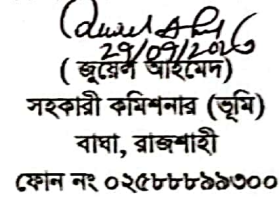 ২৭/০৭/২০২৬
(জুয়েল আহমেদ)
সহকারী কমিশনার (ভূমি)
বাঘা, রাজশাহী
ফোন নং ০২৫৮৮৮৯৯৩০০